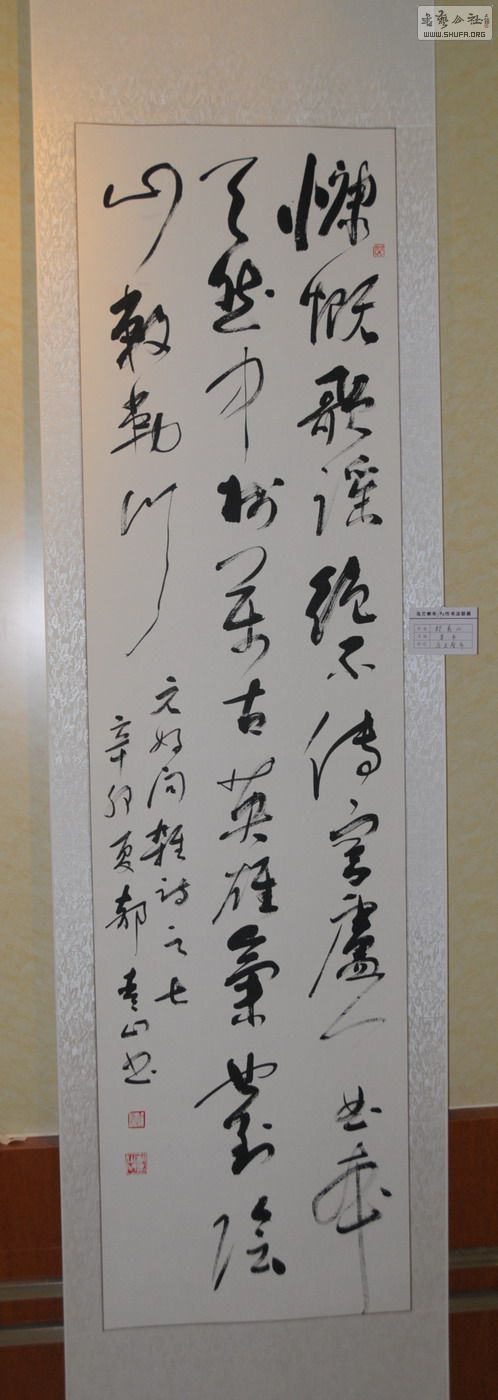 慷慨歌謠絕不傳穹廬一曲本
天然中州萬古英雄氣也到陰
山敕勒川
元好问雜詩之七
辛卯夏郝青山书
书艺公社
WWW.SHUFA.ORG